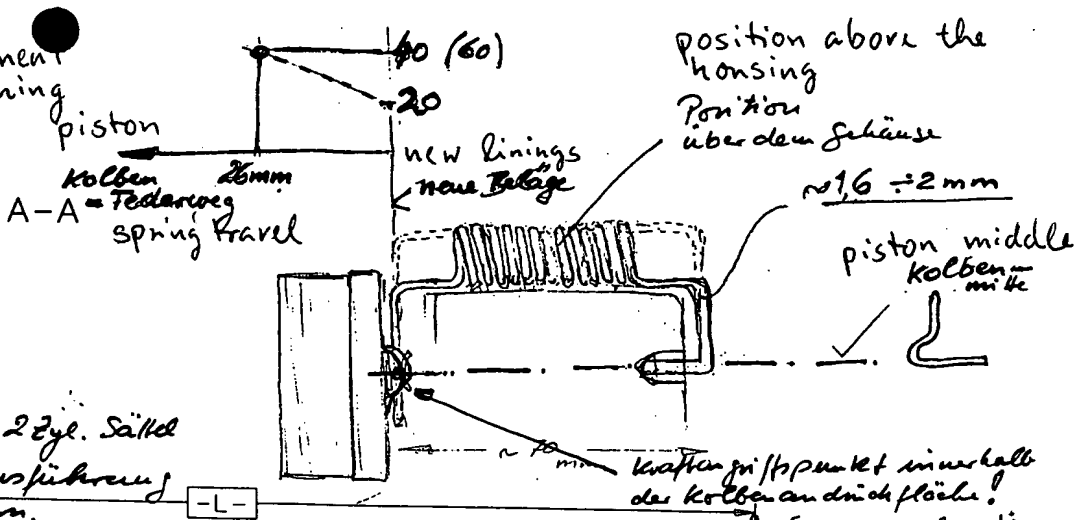 40 (60)
20
piston
Kolben
26mm
A-A = Federweg
spring travel
new linings
neue Beläge
position above the
housing
Position
über dem Gehäuse
~1,6 ÷ 2 mm
piston middle
Kolben-
mitte
~ 70 mm
2 Zyl. Sättel
-L-
Kraftangriffspunkt innerhalb
der Kolbenandruckfläche!